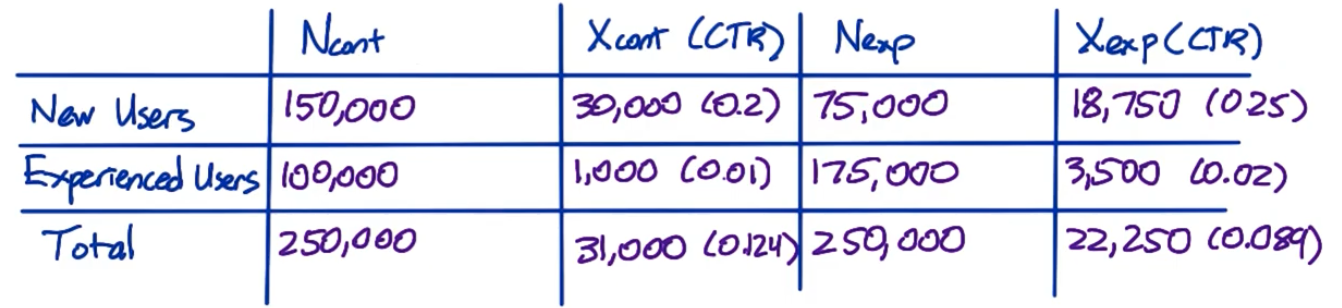 Ncont Xcont (CTR) Nexp Xexp (CTR)
New Users 150,000 30,000 (0.2) 75,000 18,750 (0.25)
Experienced Users 100,000 1,000 (0.01) 175,000 3,500 (0.02)
Total 250,000 31,000 (0.124) 250,000 22,250 (0.089)